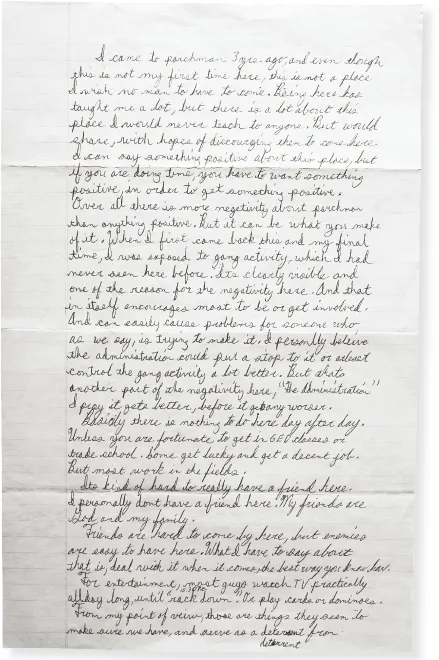 I came to parchman 3yrs. ago, and even though
this is not my first time here, this is not a place
I wish no man to have to come. Being here has
taught me a lot, but there is a lot about this
place I would never teach to anyone. But would
share, with hopes of discouraging them to come here.
I can say something positive about this place, but
if you are doing time, you have to want something
positive, in order to get something positive.
Over all there is more negetivity about parchman
than anything positive. But it can be what you make
of it. When I first came back this and my final
time, I was exposed to gang activity, which I had
never seen here before. Its clearly visible and
one of the reason for the negativity here. And that
in itself encourages most to be or get involved.
And can easily cause problems for someone who,
as we say, is trying to make it. I personally believe
the administration could put a stop to it or atleast
control the gang activity a lot better. But thats
another part of the negativity here, "the Administration"
I pray it gets better, before it gets any worser.
Basiclly there is nothing to do here day after day.
Unless you are fortunate to get in GED classes or
trade school. Some get lucky and get a decent job.
But most work in the fields.
Its kind of hard to really have a friend here.
I personally dont have a friend here. My friends are
God and my family.
Friends are hard to come by here, but enemies
are easy to have here. What I have to say about
that is, deal with it when it comes, the best way you know how.
For entertainment, most guys watch TV practically
all day long, until "rack down". Or play cards or dominoes.
From my point of view, those are things they seem to
make sure we have, and serve as a deterent from
deterrent